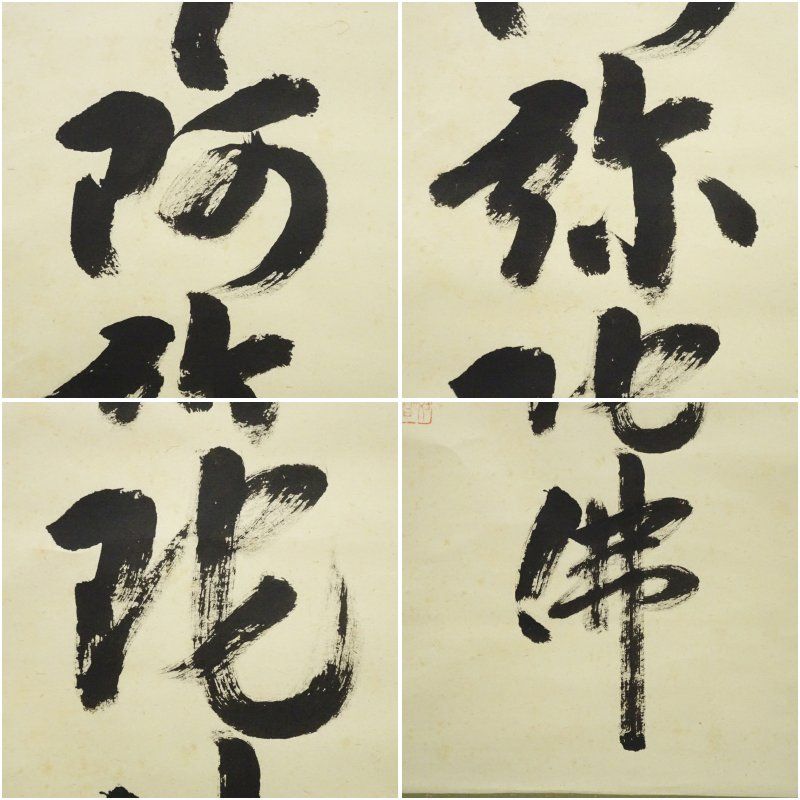 阿
弥
陀
佛